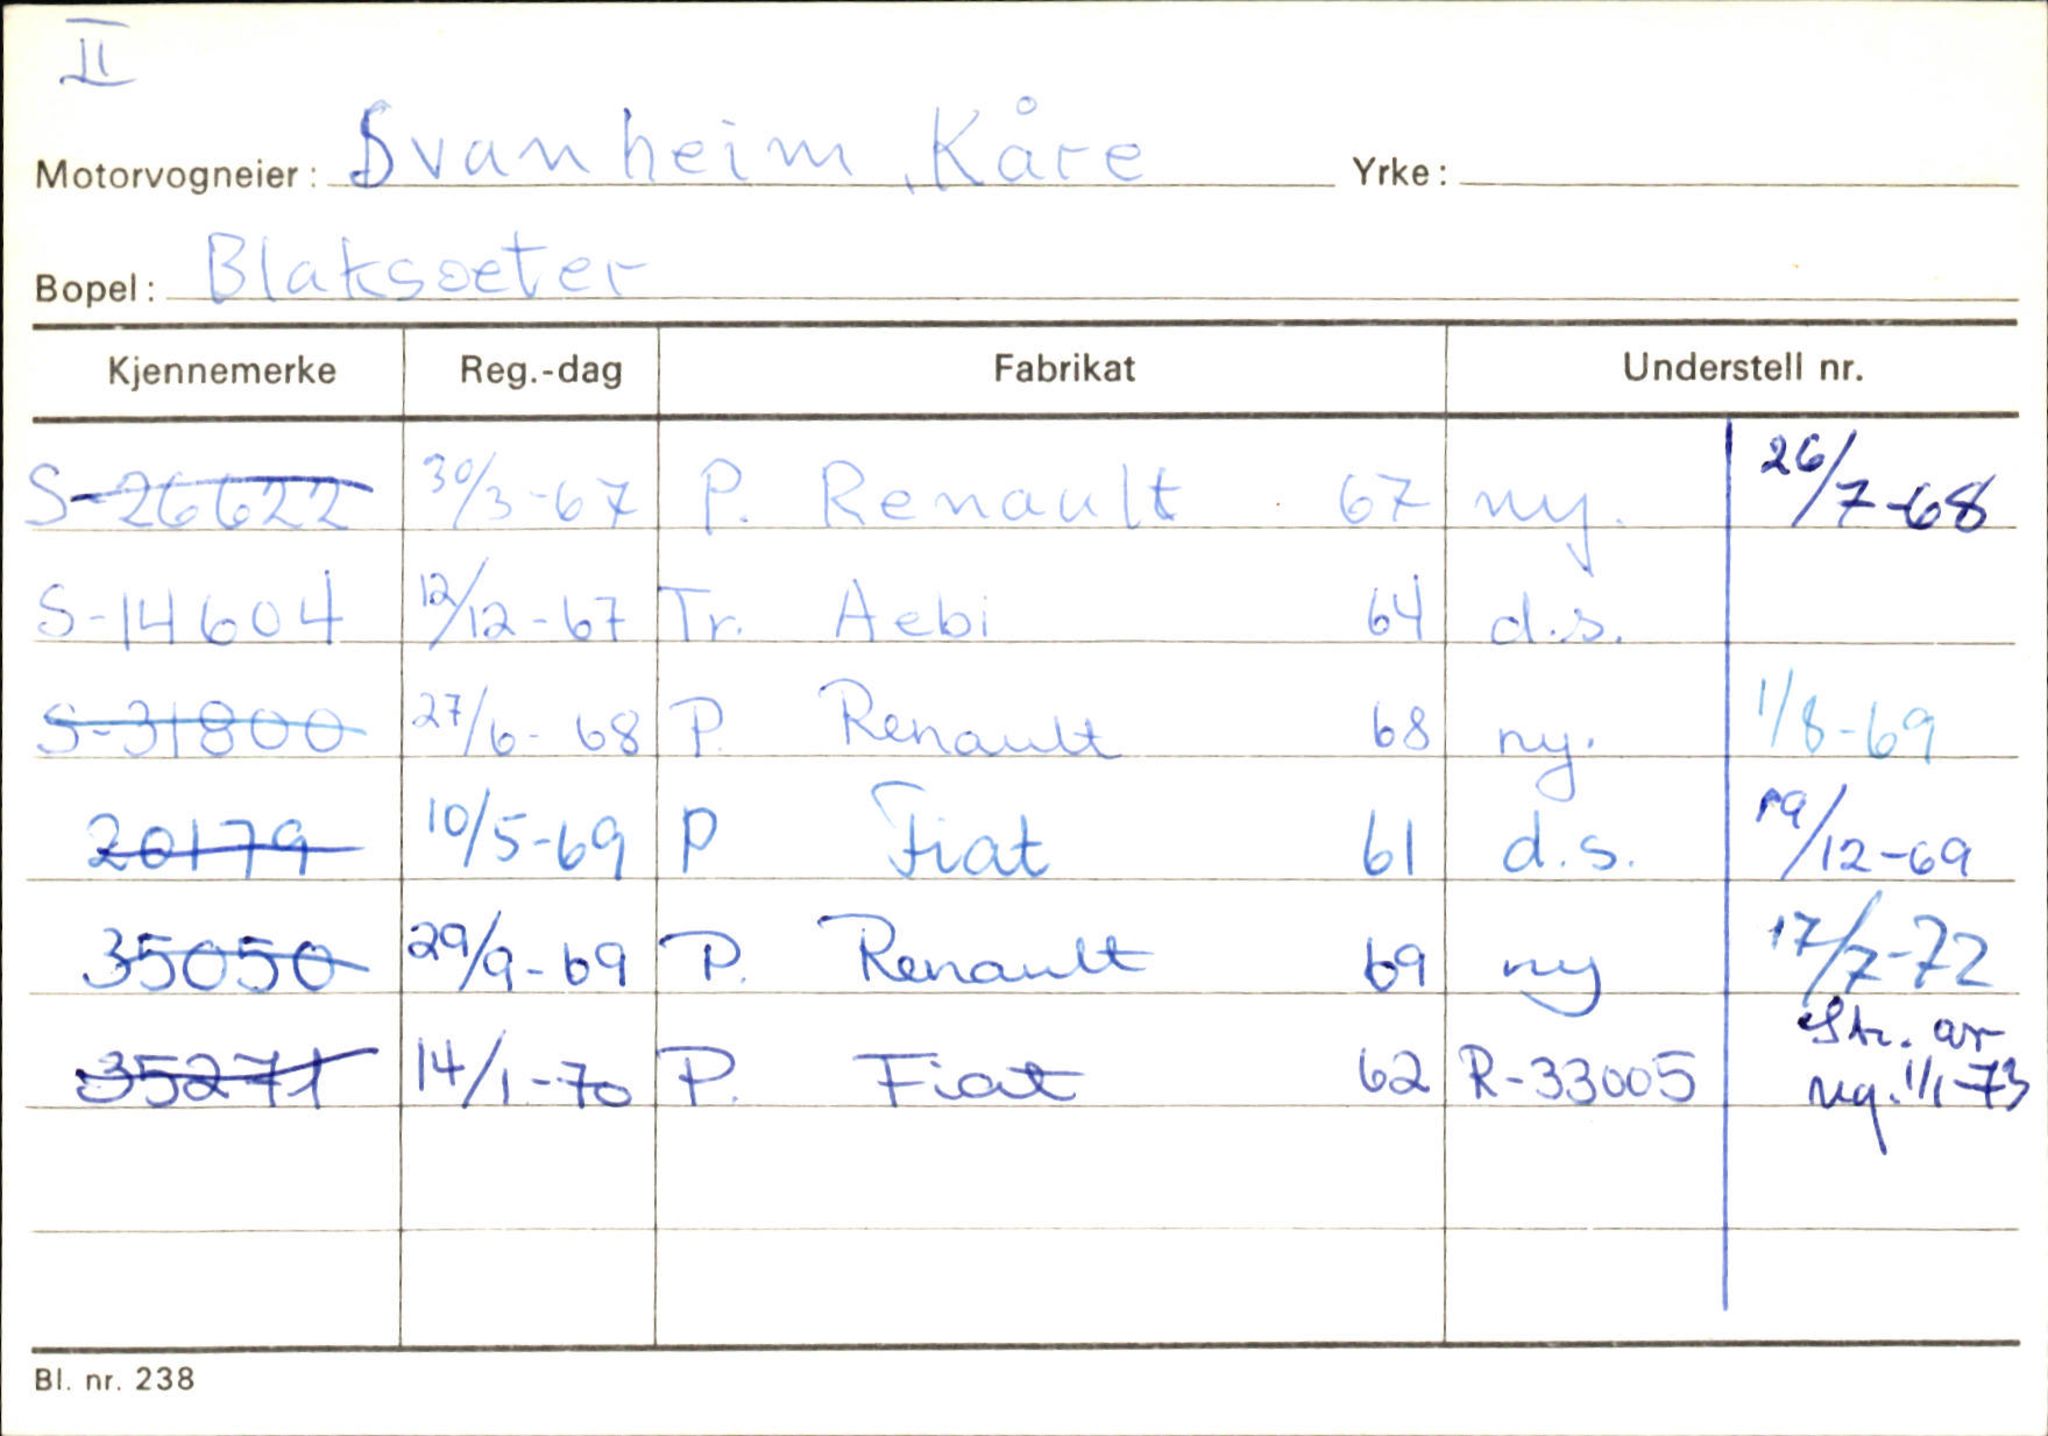 II
Motorvogneier: Svanheim, Kåre Yrke:
Bopel: Blaksæter
Kjennemerke Reg.-dag Fabrikat Understell nr.
S-26622 30/3-67 P. Renault 67 ny. 26/7-68
S-14604 12/12-67 Tr. Aebi 64 d.s.
S-31800 27/6-68 P. Renault 68 ny. 1/8-69
20179 10/5-69 P Fiat 61 d.s. 19/12-69
35050 29/9-69 P. Renault 69 ny 17/7-72
35271 14/1-70 P. Fiat 62 R-33005 Str. av
reg. 1/1-73
Bl. nr. 238